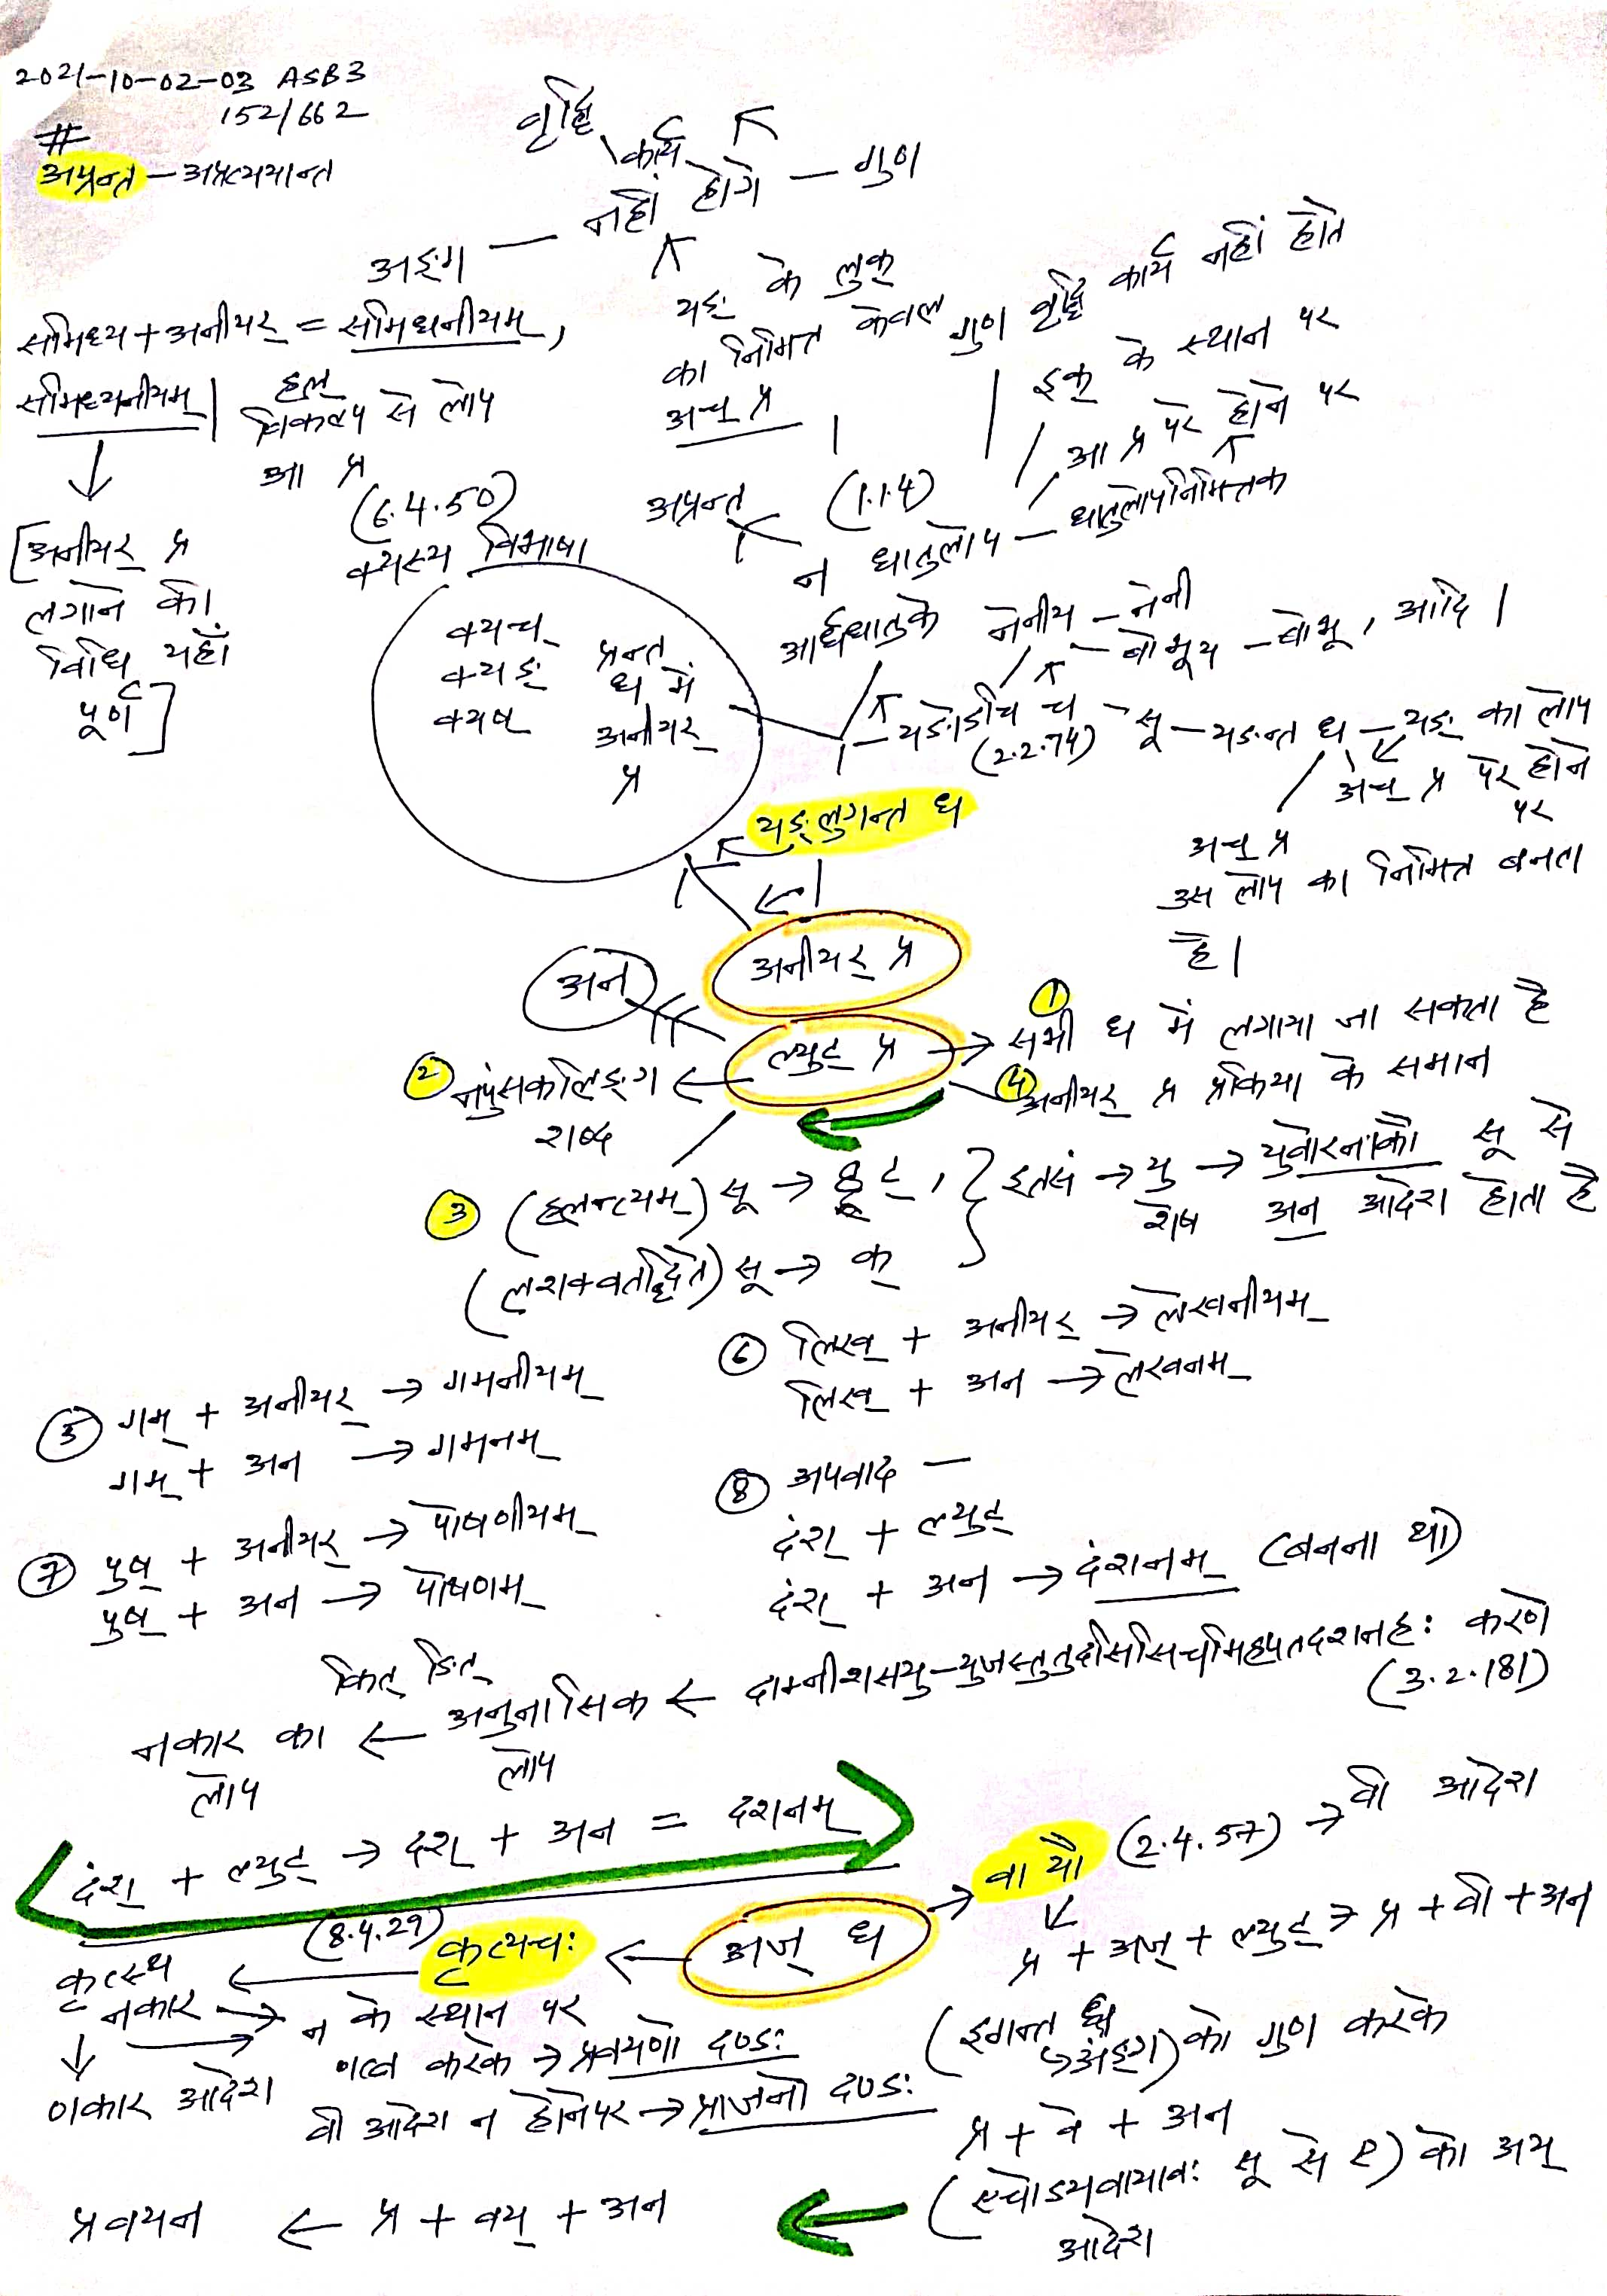 2021-10-02-03 ASB3
152/662
#
अप्रन्त - अप्रत्ययान्त
वृद्धि
कार्य
नहीं होंगे - गुण
अङ्ग
समिध्य + अनीयर् = समिधनीयम्,
समिध्यनीयम्
हल्
विकल्प से लोप
आ प्र
(6.4.50)
क्यस्य विभाषा
[अनीयर् प्र
लगाने की
विधि यहाँ
पूर्ण]
यङ् के लुक्
का निमित्त केवल
अच् प्र
अप्रन्त
गुण वृद्धि कार्य नहीं होते
इक् के स्थान पर
आ प्र परे होने पर
(1.1.4)
न धातुलोप - धातुलोपनिमित्तक
आर्धधातुके
नेनीय - नेनी
बोभूय - बोभू, आदि।
क्यच्
क्यङ्
क्यष्
प्रन्त
ध में
अनीयर्
प्र
यङोऽचि च - सू - यङन्त ध - यङ् का लोप
(2.2.74)
अच् प्र परे होने
पर
अच् प्र
उस लोप का निमित्त बनता
है।
यङ्लुगन्त ध
अनीयर् प्र
अन
ल्युट् प्र
① सभी ध में लगाया जा सकता है
② नपुंसकलिङ्ग
शब्द
④ अनीयर् प्र प्रक्रिया के समान
③ (हलन्त्यम्) सू → ट्,
(लशक्वतद्धिते) सू → क्
इत्सं → यु → युवोरनाकौ सू से
शेष अन आदेश होता है
⑤ गम् + अनीयर् → गमनीयम्
गम् + अन → गमनम्
⑥ लिख् + अनीयर् → लेखनीयम्
लिख् + अन → लेखनम्
⑦ पुष् + अनीयर् → पोषणीयम्
पुष् + अन → पोषणम्
⑧ अपवाद -
दंश् + ल्युट्
दंश् + अन → दंशनम् (बनना था)
दाम्नीशसयु-युजस्तुतुदसिसिचमिहपतदशनहः करणे
(3.2.181)
कित् ङित्
नकार का ← अनुनासिक ←
लोप
लोप
दंश् + ल्युट् → दश् + अन = दशनम्
अज् ध
वा यौ (2.4.57) → वी आदेश
प्र + अज् + ल्युट् → प्र + वी + अन
(8.4.29) कृत्यचः
कृत्स्थ
नकार → न के स्थान पर
णकार आदेश
णत्व करके → प्रवयणो दण्डः
वी आदेश न होने पर → प्राजनो दण्डः
(इगन्त ध
अंङ्ग) को गुण करके
प्र + वे + अन
(एचोऽयवायावः सू से ए) को अय्
आदेश
प्रवयन ← प्र + वय् + अन